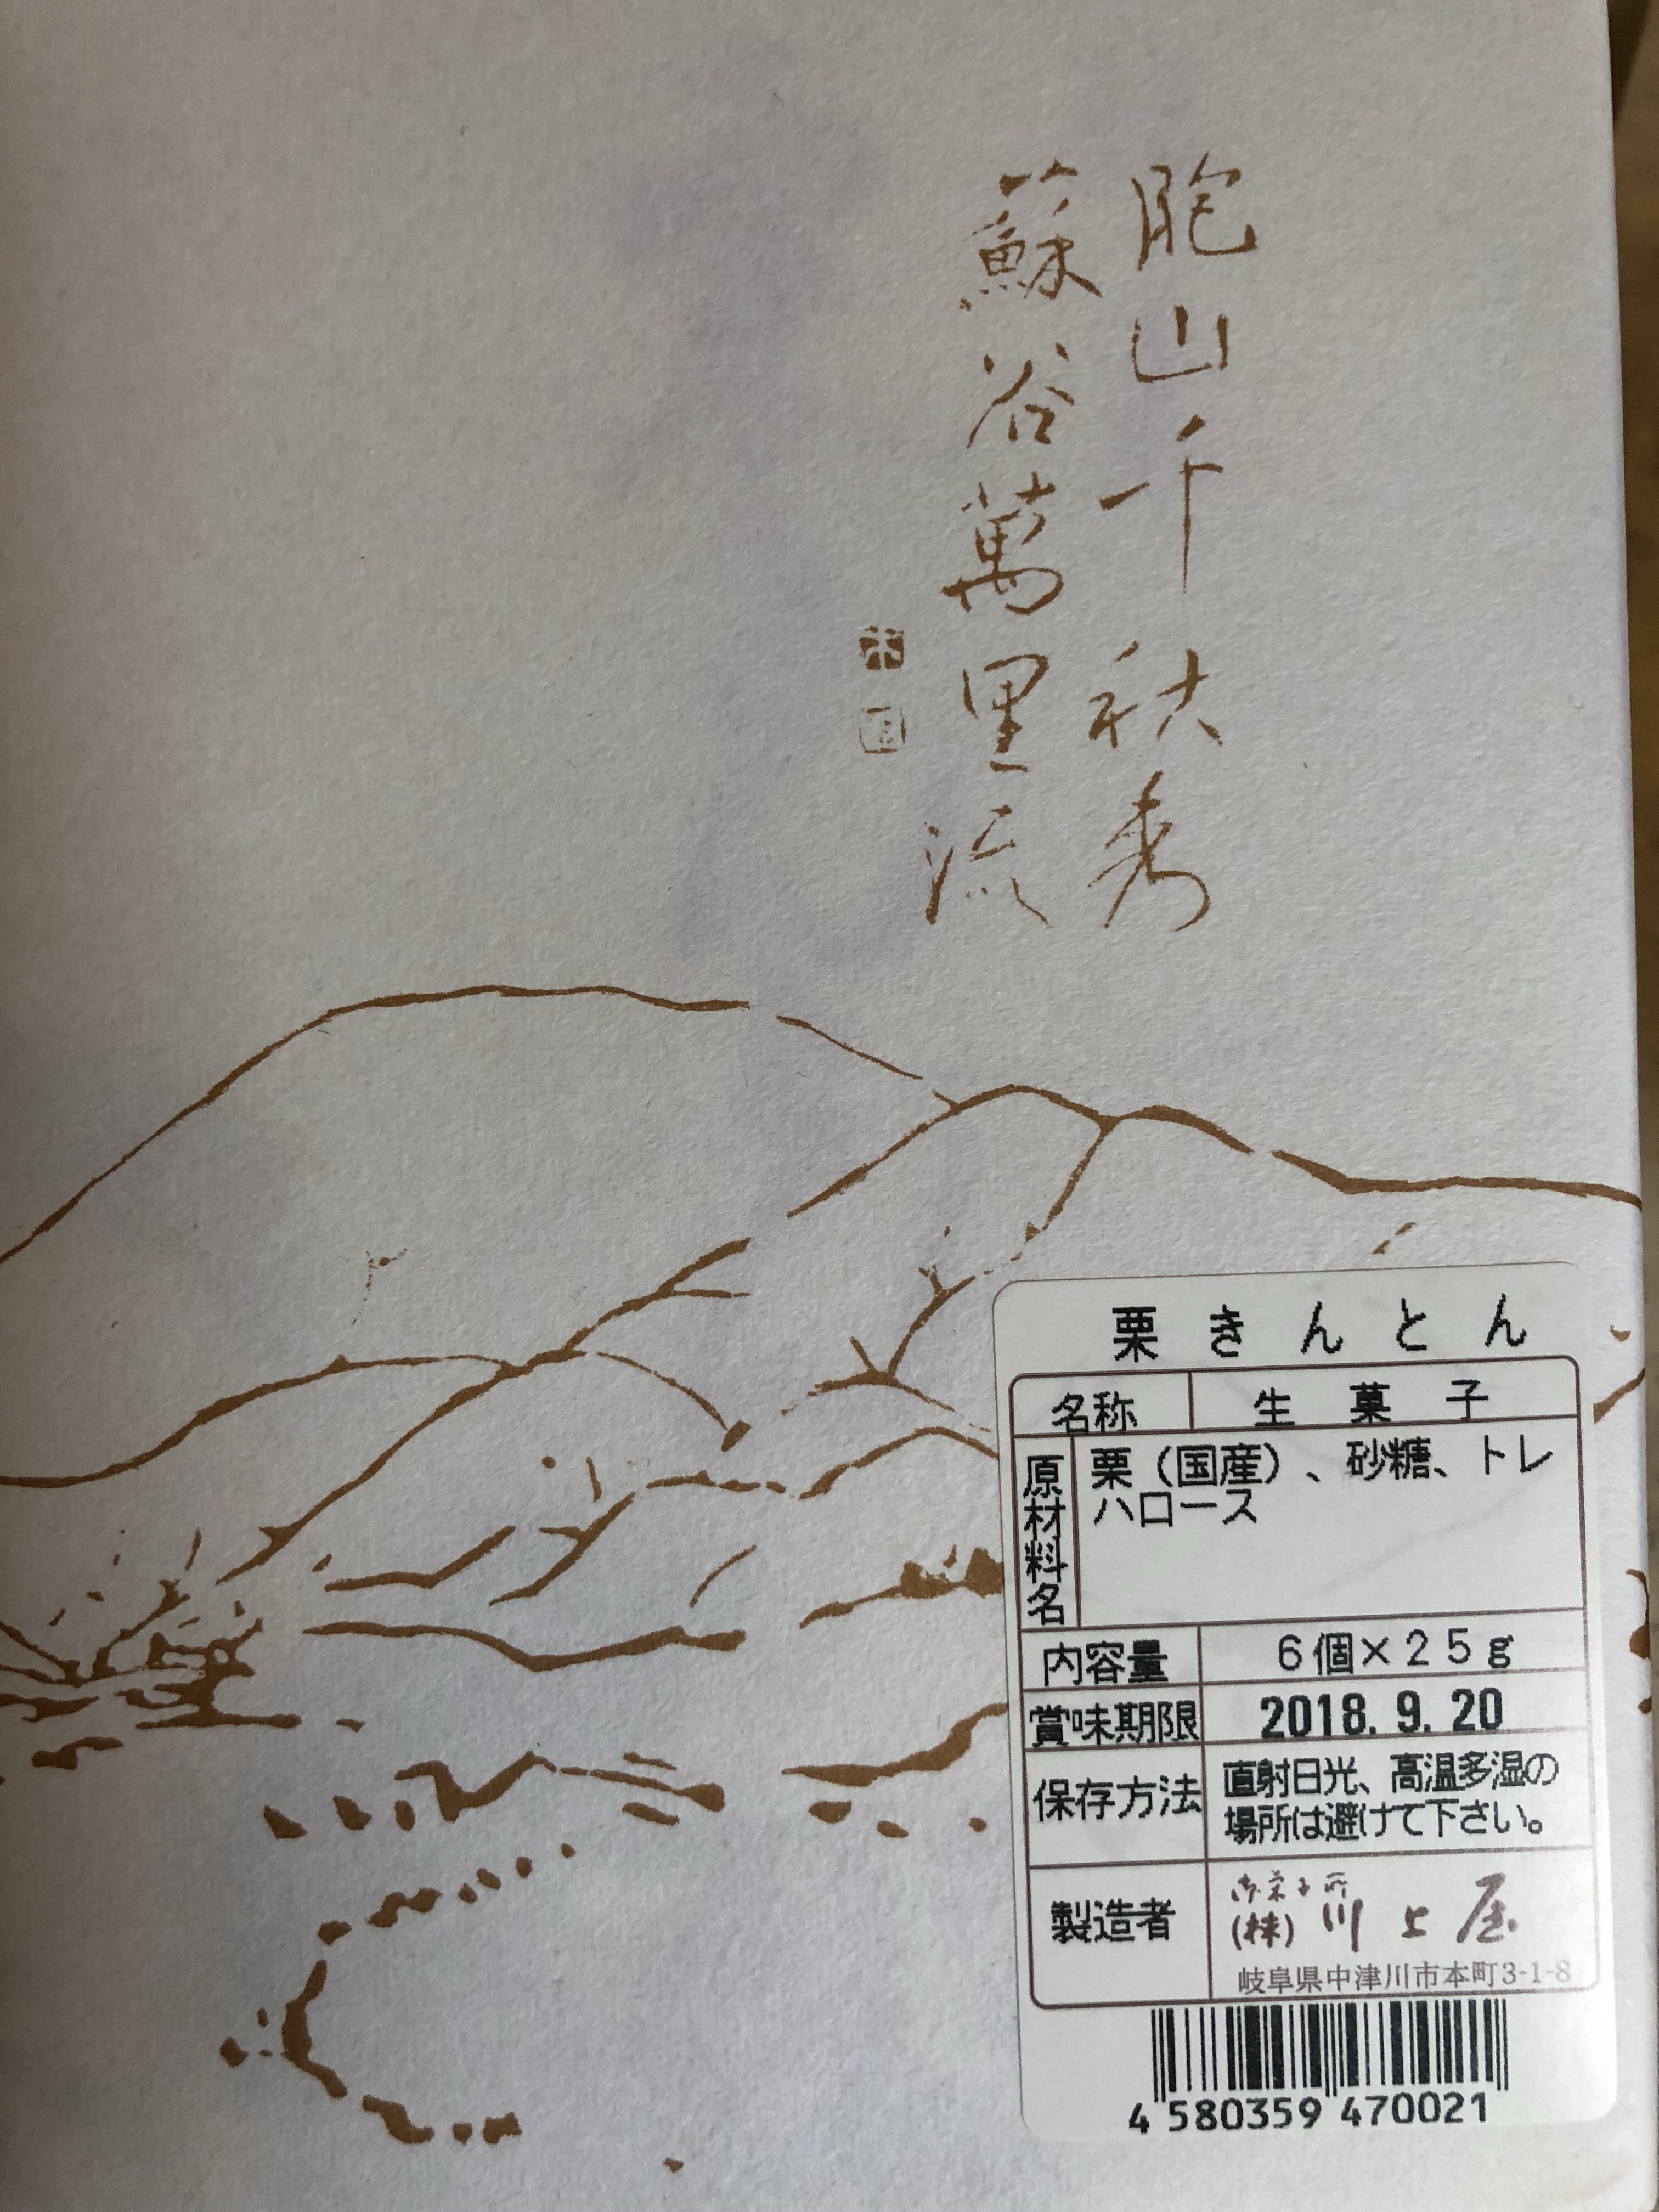 胞山千秋秀
蘇谷萬里流
栗きんとん
名称 生菓子
原材料名 栗（国産）、砂糖、トレ
ハロース
内容量 6個×25g
賞味期限 2018. 9. 20
保存方法 直射日光、高温多湿の
場所は避けて下さい。
製造者 御菓子所
(株) 川上屋
岐阜県中津川市本町3-1-8
4 580359 470021